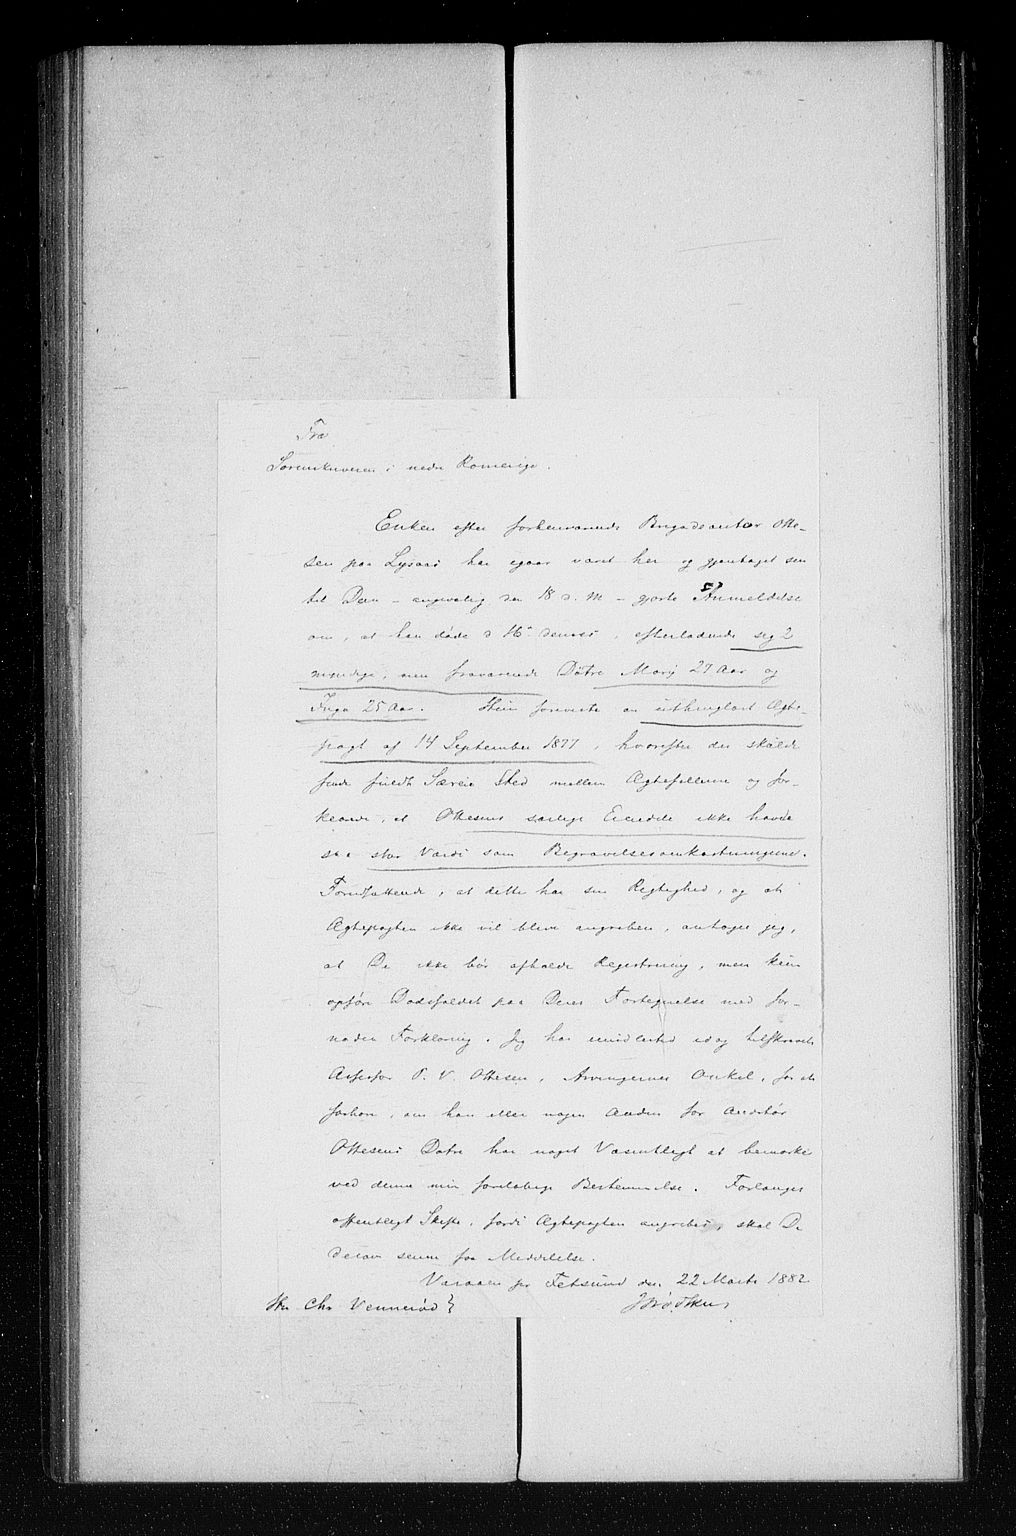 Fra
Sorenskriveren i nedre Romerige.
Enken efter forhenværende Brigadeauditør Otte-
sen paa Lysaas har igaar været her og gjentaget sin
til Dem – angivelig den 18 d. M – gjorte Anmeldelse
om, at han døde d 16de dennes, efterladende sig 2
myndige, men fraværende Døtre Mary 27 Aar og
Inga 25 Aar. Hun foreviste en uthinglæst Ægte-
pagt af 14 September 1877, hvorefter der skulde
finde fuldt Særeie Sted mellem Ægtefellerne og for-
klarede, at Ottesens særlige Eiendele ikke havde
saa stor Værdi som Begravelsesomkostningerne.
Forudsættende, at dette har sin Rigtighed, og at
Ægtepagten ikke vil blive angreben, antager jeg,
at De ikke bør afholde Registrering, men kun
opføre Dødsfaldet paa Deres Fortegnelse med for-
nøden Forklaring. Jeg har imidlertid idag tilskrevet
Assessor P. V. Ottesen, Arvingernes Onkel, for at
forhøre, om han eller nogen Anden for Auditør
Ottesens Døtre har noget Væsentligt at bemærke
ved denne min foreløbige Bestemmelse. Forlanges
offentligt Skifte, fordi Ægtepagten angribes, skal De
derom senere faa Meddelelse.
Varaaen pr Fetsund den 22 Marts 1882
Hr Chr Vennerød}